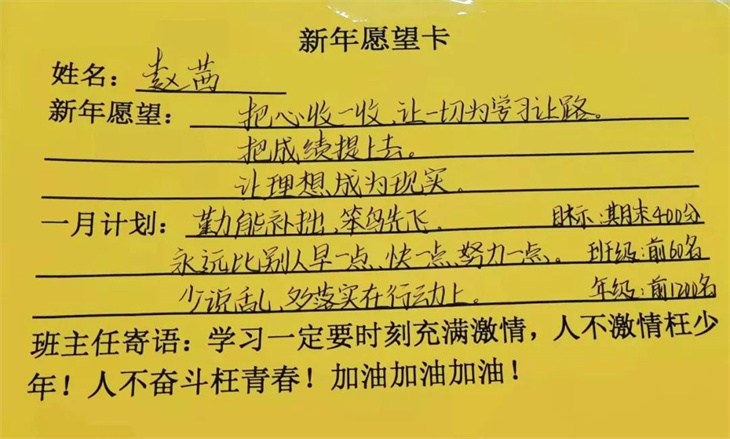 新年愿望卡
姓名：赵茜
新年愿望：把心收一收，让一切为学习让路。
把成绩提上去。
让理想成为现实。
一月计划：勤能补拙、笨鸟先飞。 目标：期末400分
永远比别人早一点、快一点、努力一点。 班级：前60名
少说乱，多落实在行动上。 年级：前1200名
班主任寄语：学习一定要时刻充满激情，人不激情枉少
年！人不奋斗枉青春！加油加油加油！